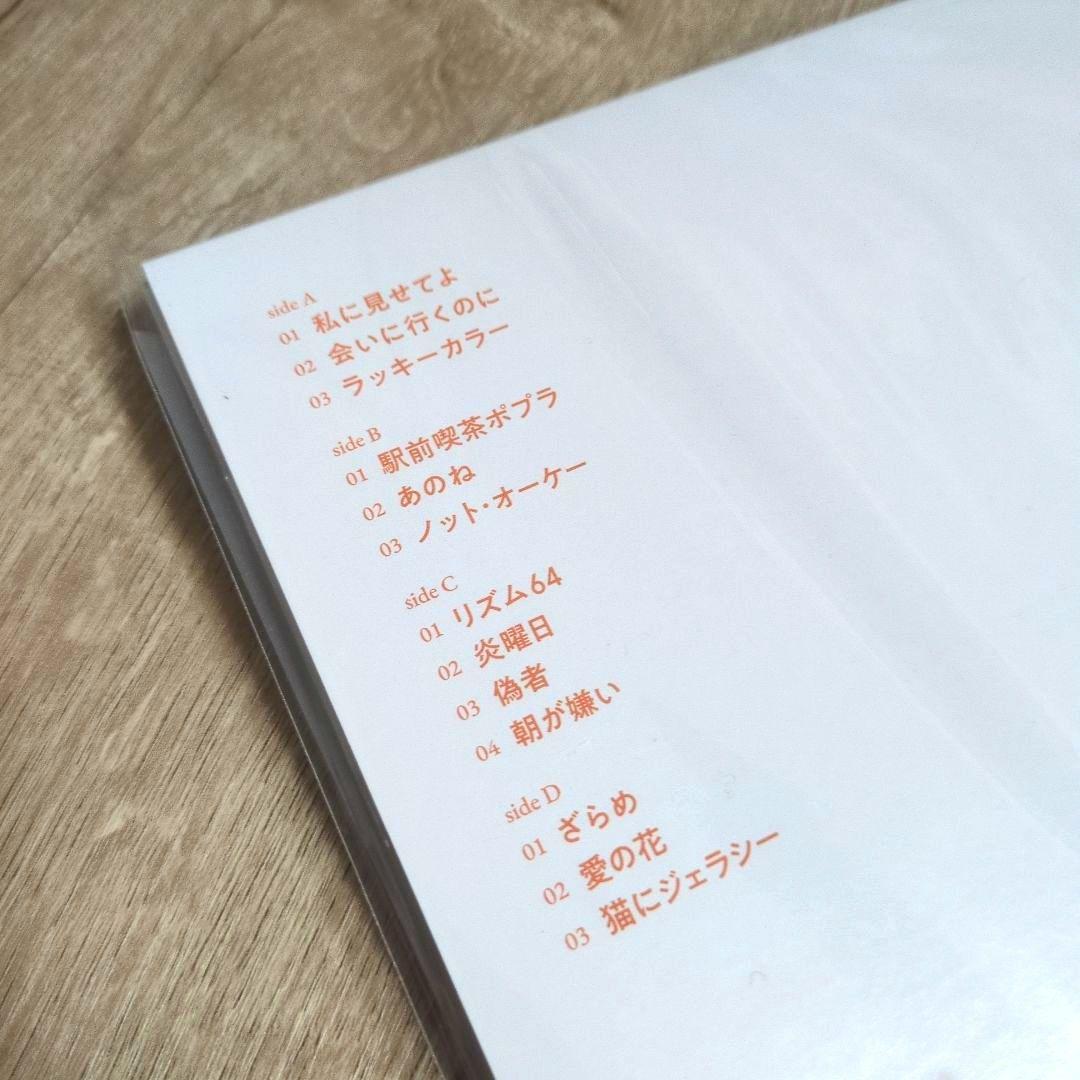 side A
01 私に見せてよ
02 会いに行くのに
03 ラッキーカラー
side B
01 駅前喫茶ポプラ
02 あのね
03 ノット・オーケー
side C
01 リズム64
02 炎曜日
03 偽者
04 朝が嫌い
side D
01 ざらめ
02 愛の花
03 猫にジェラシー